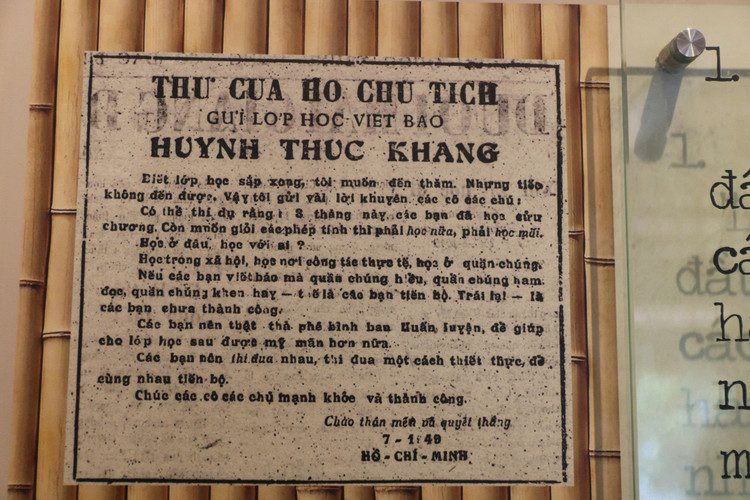 THƯ CUA HO CHU TICH
GƯI LƠP HOC VIET BAO
HUYNH THUC KHANG
Biết lớp học sắp xong, tôi muốn đến thăm. Nhưng tiếc
không đến được. Vậy tôi gửi vài lời khuyên các cô các chú:
Có thể thí dụ rằng: 3 tháng này, các bạn đã học cửu
chương. Còn muốn giỏi các phép tính thì phải học nữa, phải học mãi.
Học ở đâu, học với ai?
Học trong xã hội, học nơi công tác thực tế, học ở quần chúng.
Nếu các bạn viết báo mà quần chúng hiểu, quần chúng ham
đọc, quần chúng khen hay — thế là các bạn tiến bộ. Trái lại — là
các bạn chưa thành công.
Các bạn nên thật thà phê bình ban Huấn luyện, để giúp
cho lớp học sau được mỹ mãn hơn nữa.
Các bạn nên thi đua nhau, thi đua một cách thiết thực, để
cùng nhau tiến bộ.
Chúc các cô các chú mạnh khỏe và thành công.
Chào thân mến và quyết thắng
7 - 1949
HỒ - CHÍ - MINH
1.